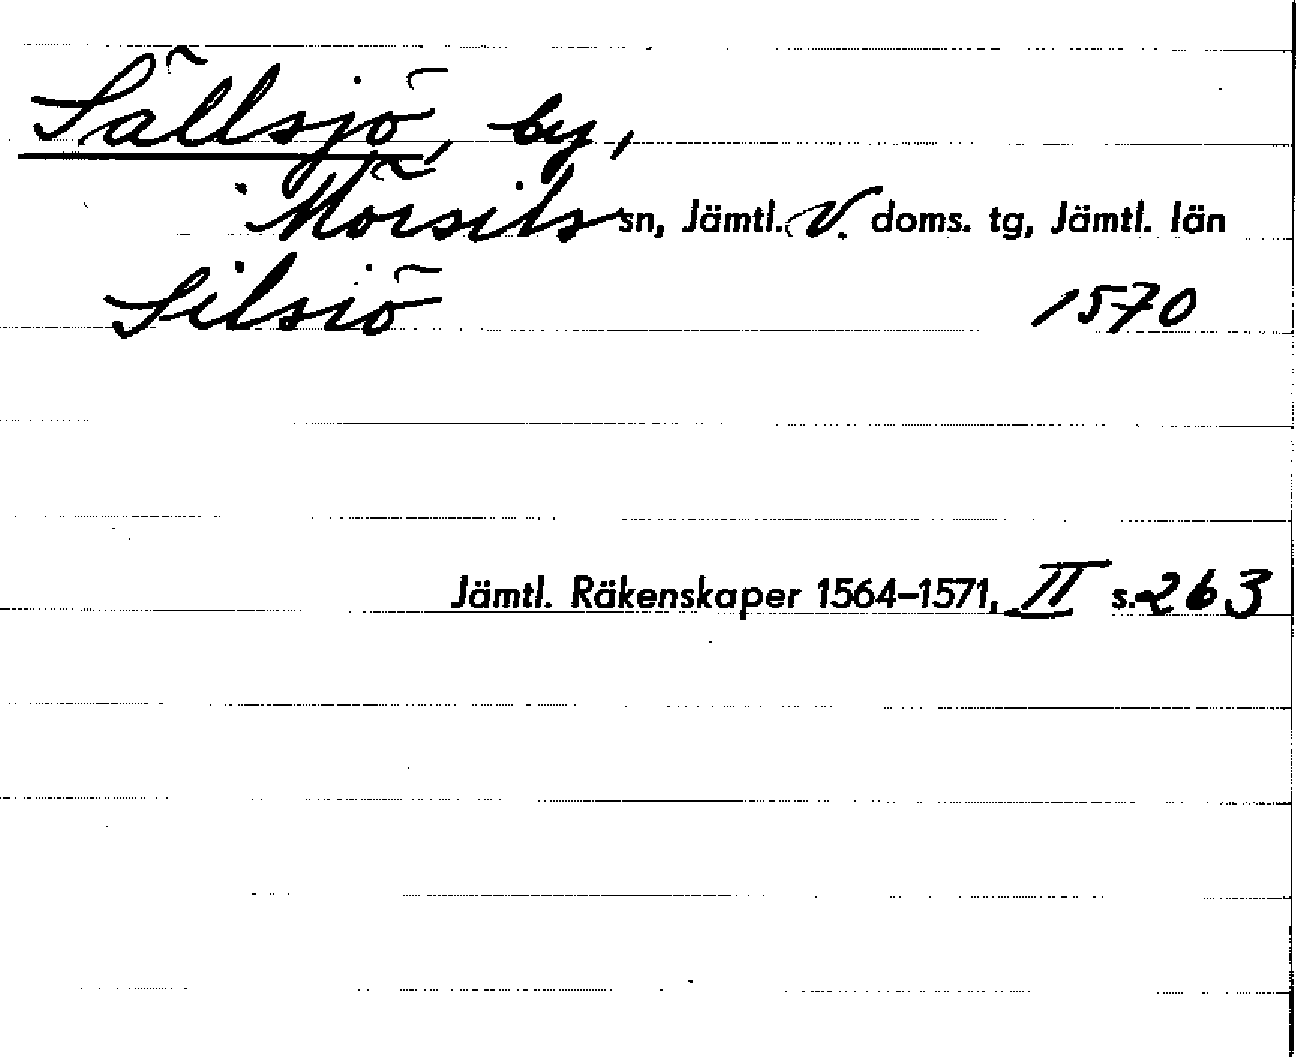 Sällsjö, by,
Mörsils sn, Jämtl. V. doms. tg, Jämtl. län
Silsiö 1570
Jämtl. Räkenskaper 1564–1571, II s. 263